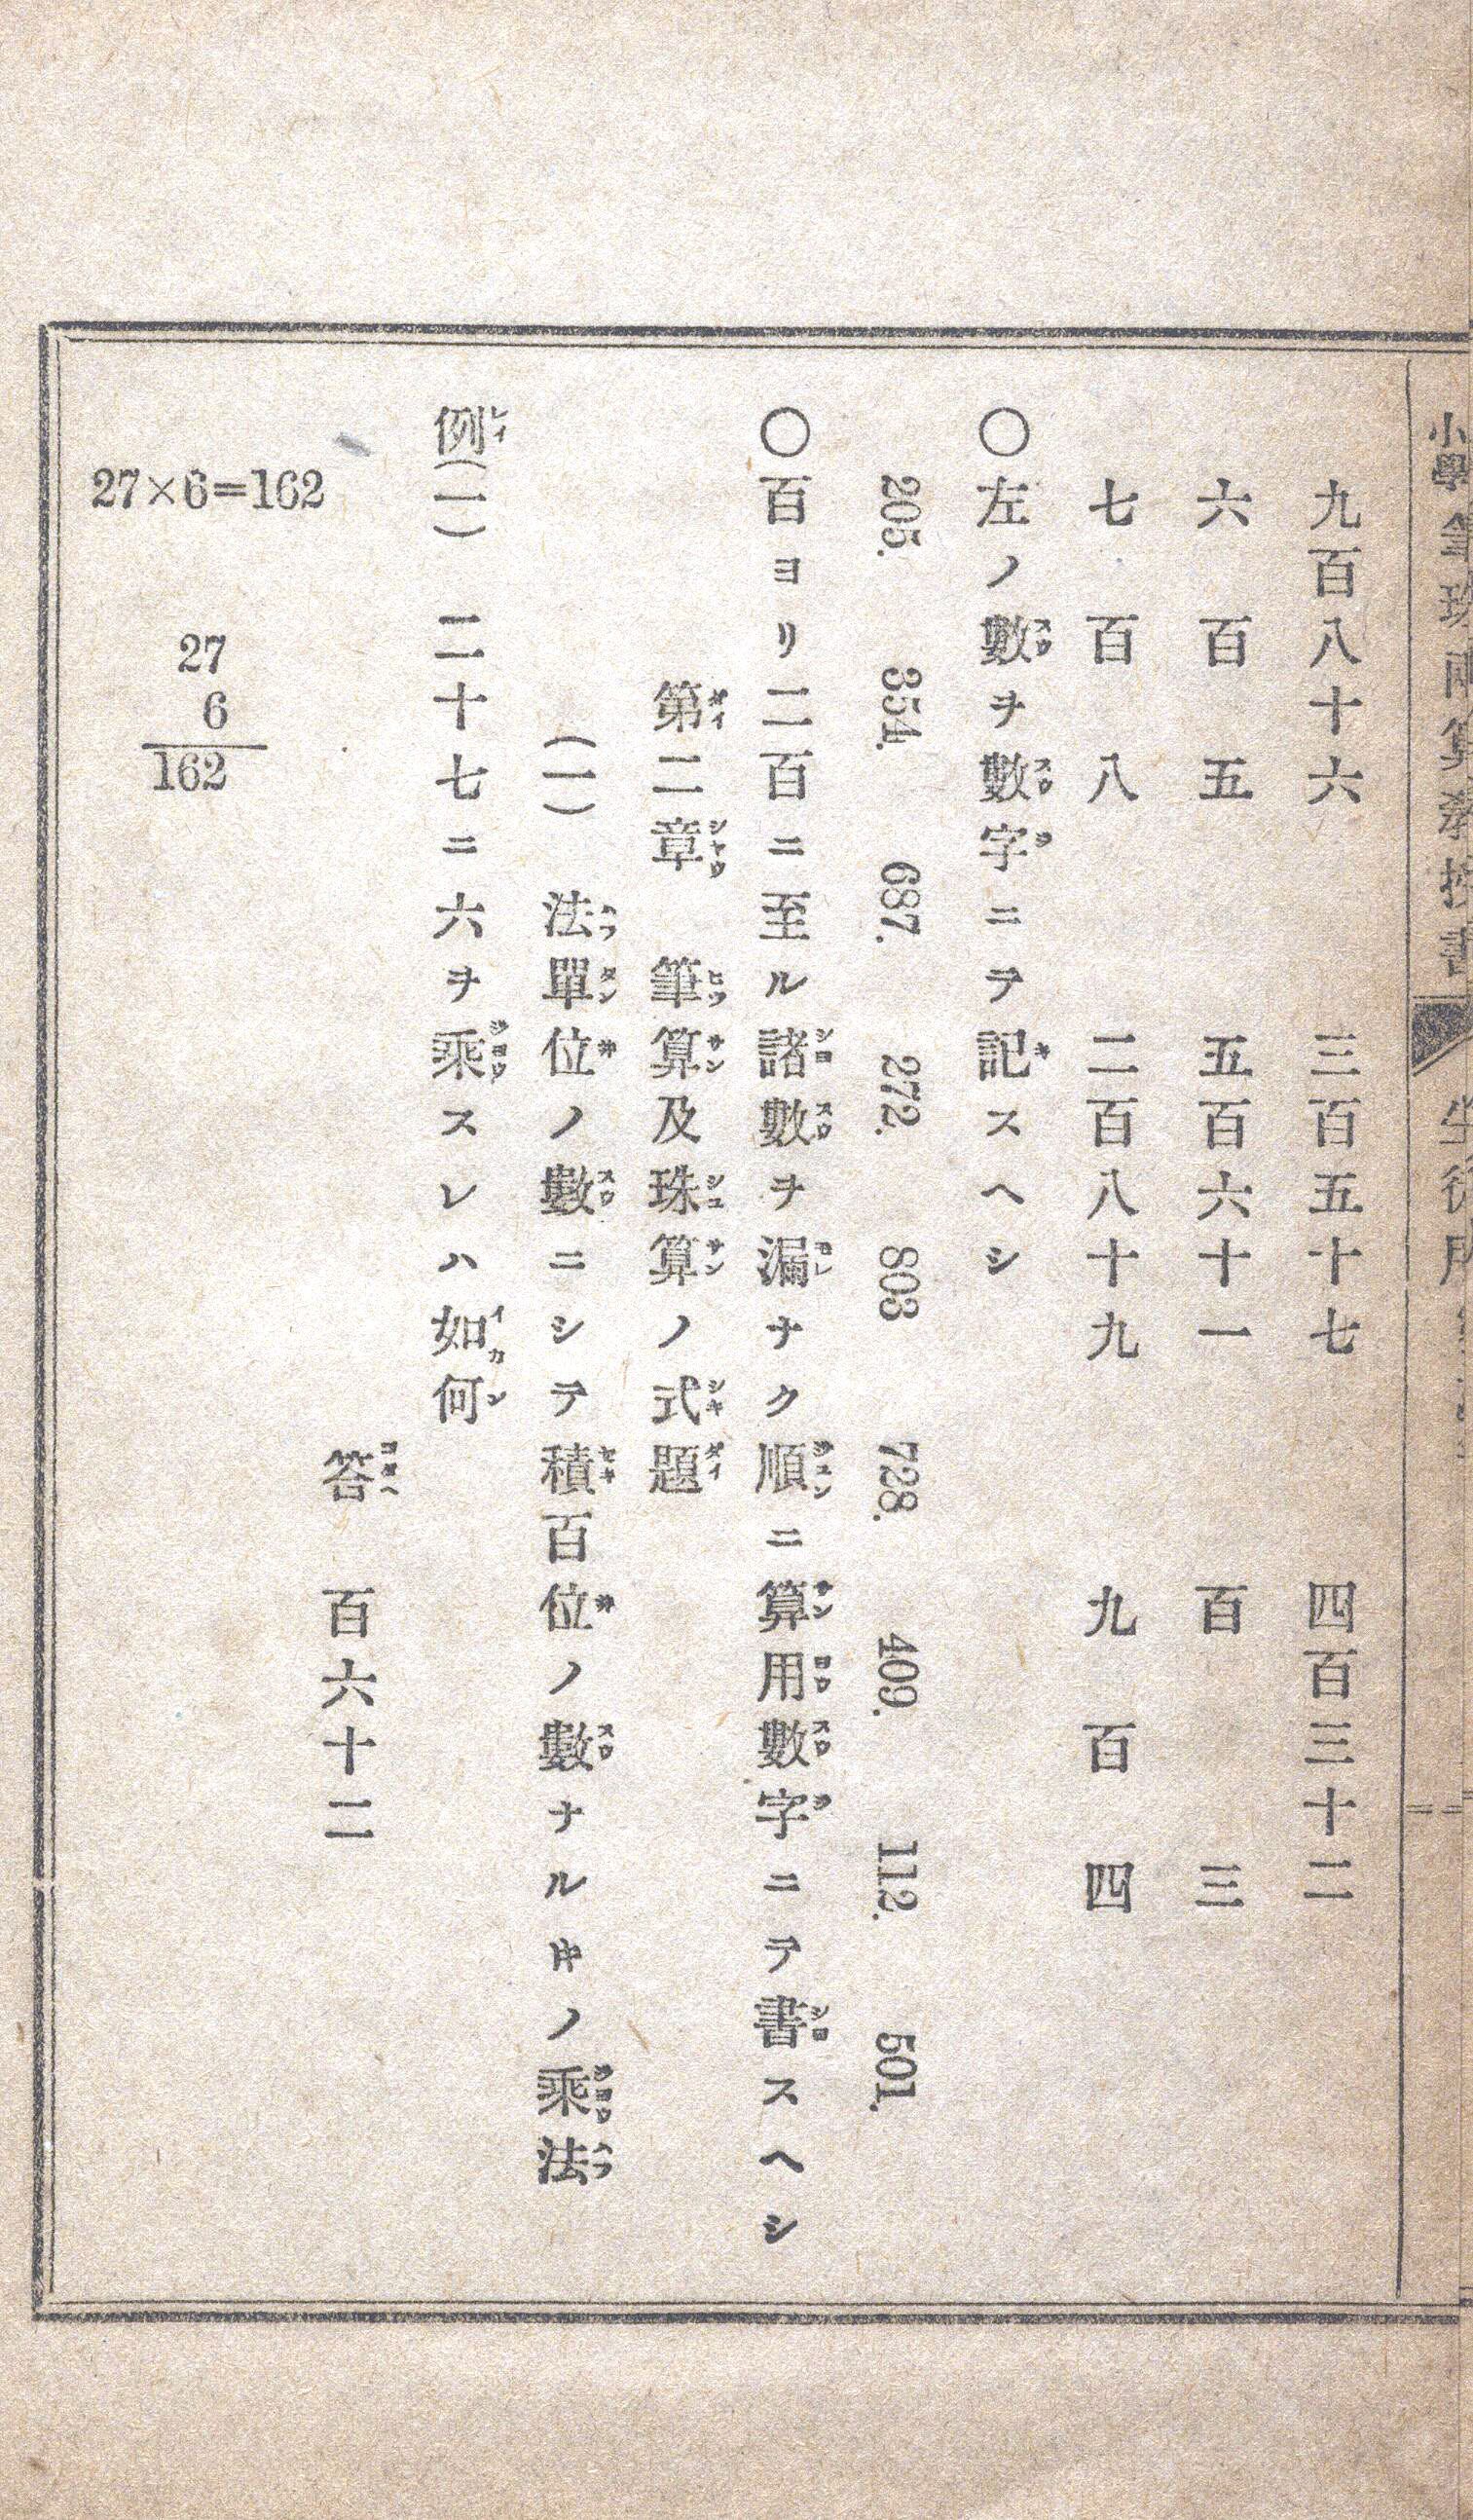 小學筆珠兩算教授書
九百八十六 三百五十七 四百三十二
六百五 五百六十一 百三
七百八 二百八十九 九百四
〇左ノ數ヲ數字ニテ記スヘシ
205. 354. 687. 272. 803 728. 409. 112. 501.
〇百ヨリ二百ニ至ル諸數ヲ漏ナク順ニ算用數字ニテ書スヘシ
第二章 筆算及珠算ノ式題
(一) 法單位ノ數ニシテ積百位ノ數ナルキノ乘法
例(一) 二十七ニ六ヲ乘スレハ如何
答 百六十二
27×6=162
27
6
162